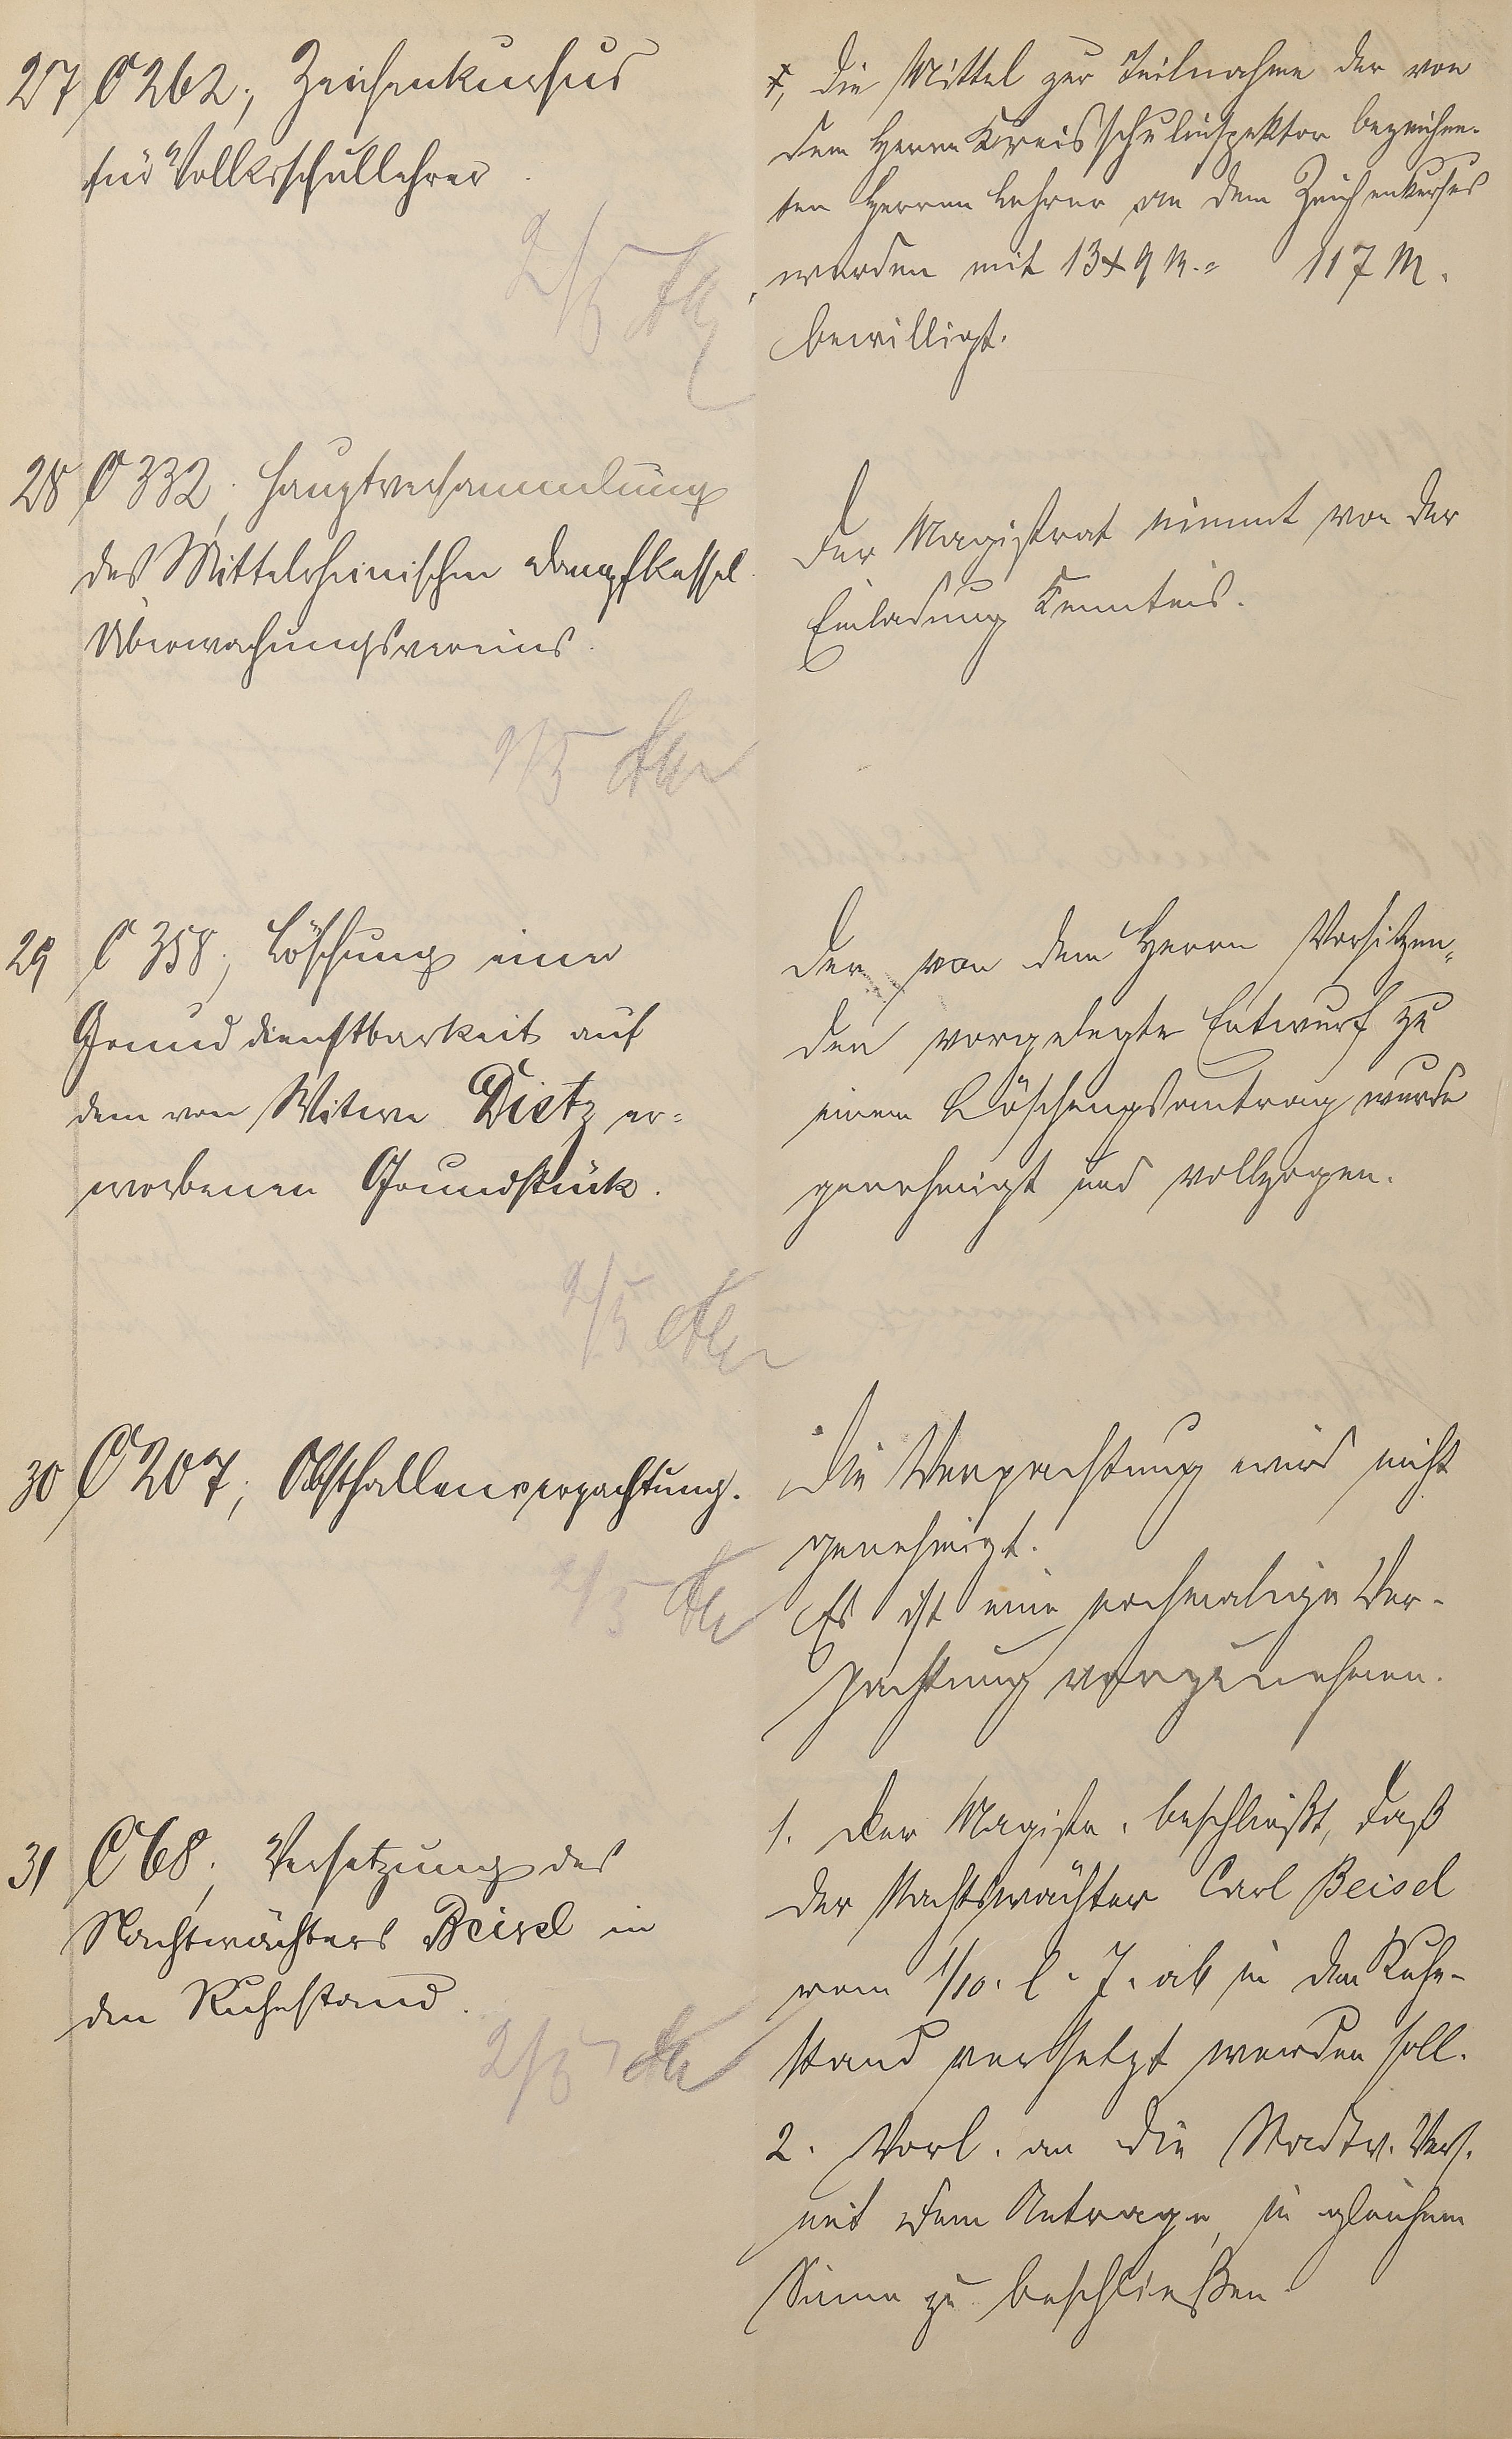 27 C 262, Zeichenkursus
für Volksschullehrer.
Die Mittel zur Teilnahme der von
dem Herrn Kreisschulinspektor bezeichne-
ten Herren Lehrer an dem Zeichenkursus
werden mit 13 x 9 M. = 117 M.
bewilligt.
2/5
28 C 332, Hauptversammlung
des Mittelrheinischen Dampfkessel
Überwachungsvereins.
Der Magistrat nimmt von der
Einladung Kenntnis.
2/5
29 C 358, Löschung einer
Grunddienstbarkeit auf
dem von Witwe Dietz er-
worbenen Grundstück.
Der von dem Herrn Vorsitzen-
den vorgelegte Entwurf zu
einem Löschungsantrag wurde
genehmigt und vollzogen.
2/5
30 C 207, Obsthallenverpachtung.
Die Verpachtung wird nicht
genehmigt.
Es ist eine nochmalige Ver-
pachtung vorzunehmen.
2/5
31 C 68, Versetzung des
Nachtwächters Beisel in
den Ruhestand.
1. Der Magistr. beschließt, daß
der Nachtwächter Carl Beisel
vom 1/10. l. J. ab in den Ruhe-
stand versetzt werden soll.
2. Vorl. an die Stadtv. Vers.
mit dem Antrage, in gleichem
Sinne zu beschließen.
2/5